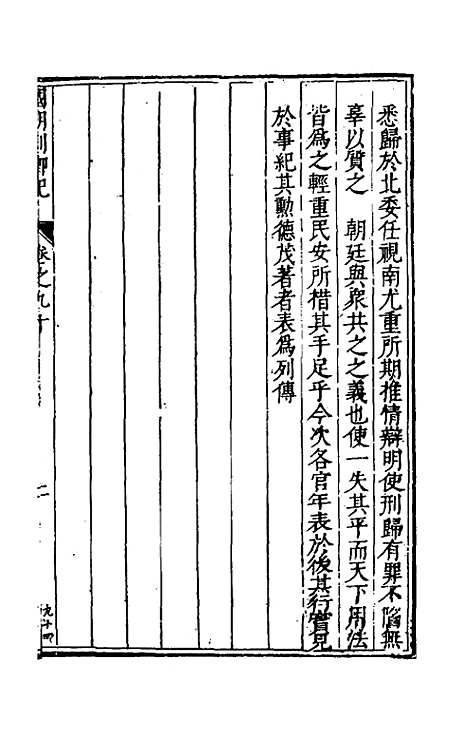 悉歸於北委任視南尤重所期推情辯明使刑歸有罪不陷無
辜以質之　朝廷與衆共之之義也使一失其平而天下用法
皆爲之輕重民安所措其手足乎今次各官年表於後其行實見
於事紀其勳德茂著者表爲列傳
國朝列卿紀
卷之九十
九十四